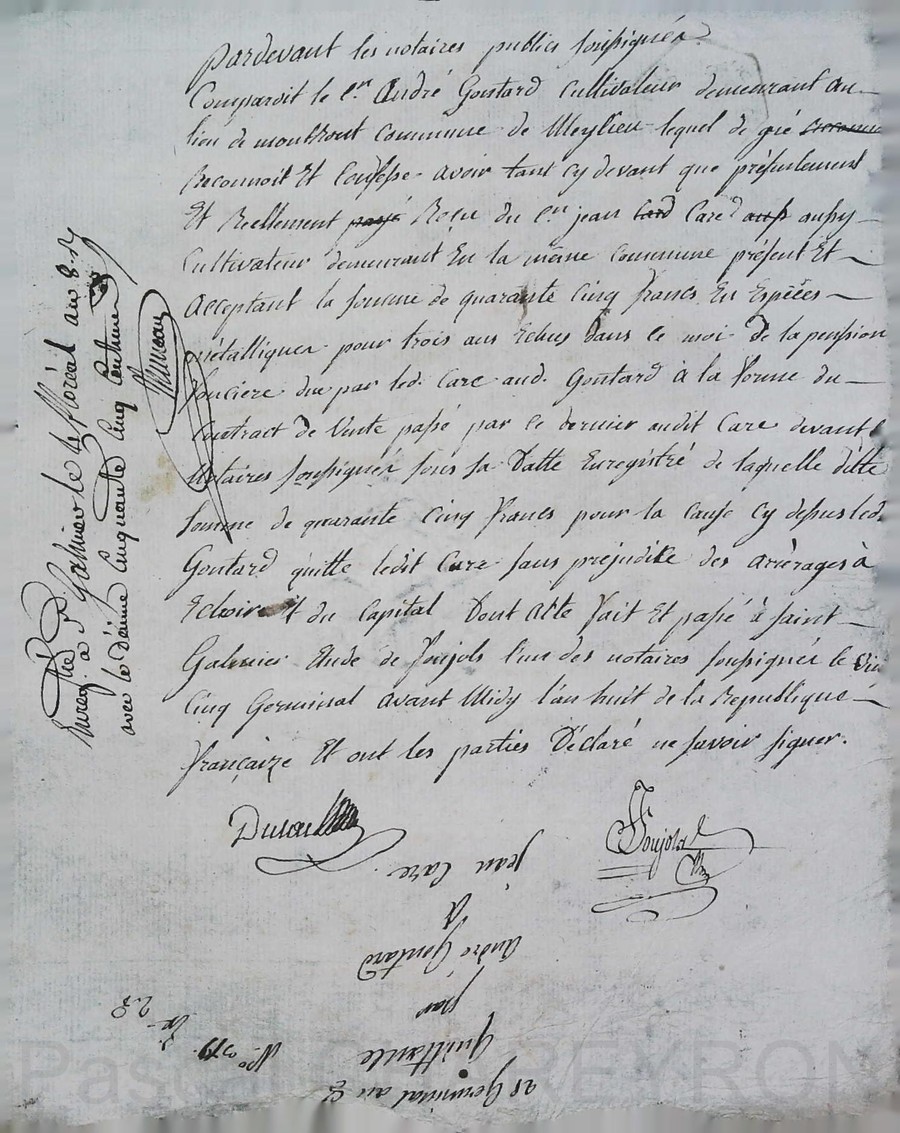 Pardevant les notaires publics soussignés
Comparoit le Cen André Goutard Cultivateur demeurant au
lieu de montrout Commune de Meylieu lequel de gré
Reconnoit Et Confesse avoir tant Cy devant que présentement
Et Reellement payé Reçu du Cen jean Card Care aussy aussy
Cultivateur demeurant En la même Commune présent Et
Acceptant la somme de quarante Cinq francs En Espèces
métalliques pour trois ans Echus dans le moi de la pension
fonciere due par led. Care aud. Goutard à la forme du
Contract de Vente passé par ce dernier audit Care devant
Notaires soussignés sous sa Datte Enregistré de laquelle ditte
somme de quarante Cinq francs pour la Cause Cy dessus led.
Goutard quitte ledit Care sans prejudice des arrérages à
Echoir Et du Capital Dont Acte fait Et passé à saint
Galmier Etude de Soujols l'un des notaires soussignés le
Cinq Germinal avant Midy l'an huit de la Republique
françaize Et ont les parties Déclaré ne savoir signer.
Soujols
Enreg. à St Galmier le floréal an 8
avec le Dixime Cinquante Cinq Centimes
28 Germinal an 8
Quittance
par
André Goutard
à
jean Care.
No 379.
28